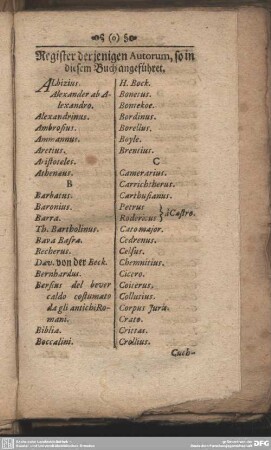 (o)
Register derjenigen Autorum, so in
diesem Buch angeführet.
ALbizius.
Alexander ab A-
lexandro.
Alexandrinus.
Ambrosius.
Ammannus.
Aretius.
Aristoteles.
Athenæus.
B
Barbatus.
Baronius.
Barra.
Th. Bartholinus.
Bava Basra.
Becherus.
Dav. von der Beck.
Bernhardus.
Bersius del bever
caldo costumato
da gli antichi Ro-
mani.
Biblia.
Boccalini.
H. Bock.
Bonetus.
Bontekoe.
Bordinus.
Borelius.
Boyle.
Brentius.
C
Camerarius.
Carrichterus.
Carthusianus.
Petrus
Rodericus } à Castro.
Cato major.
Cedrenus.
Celsus.
Chemnitius.
Cicero.
Coiterus.
Collutius.
Corpus Juris.
Crato.
Critias.
Crollius.
Cuth-